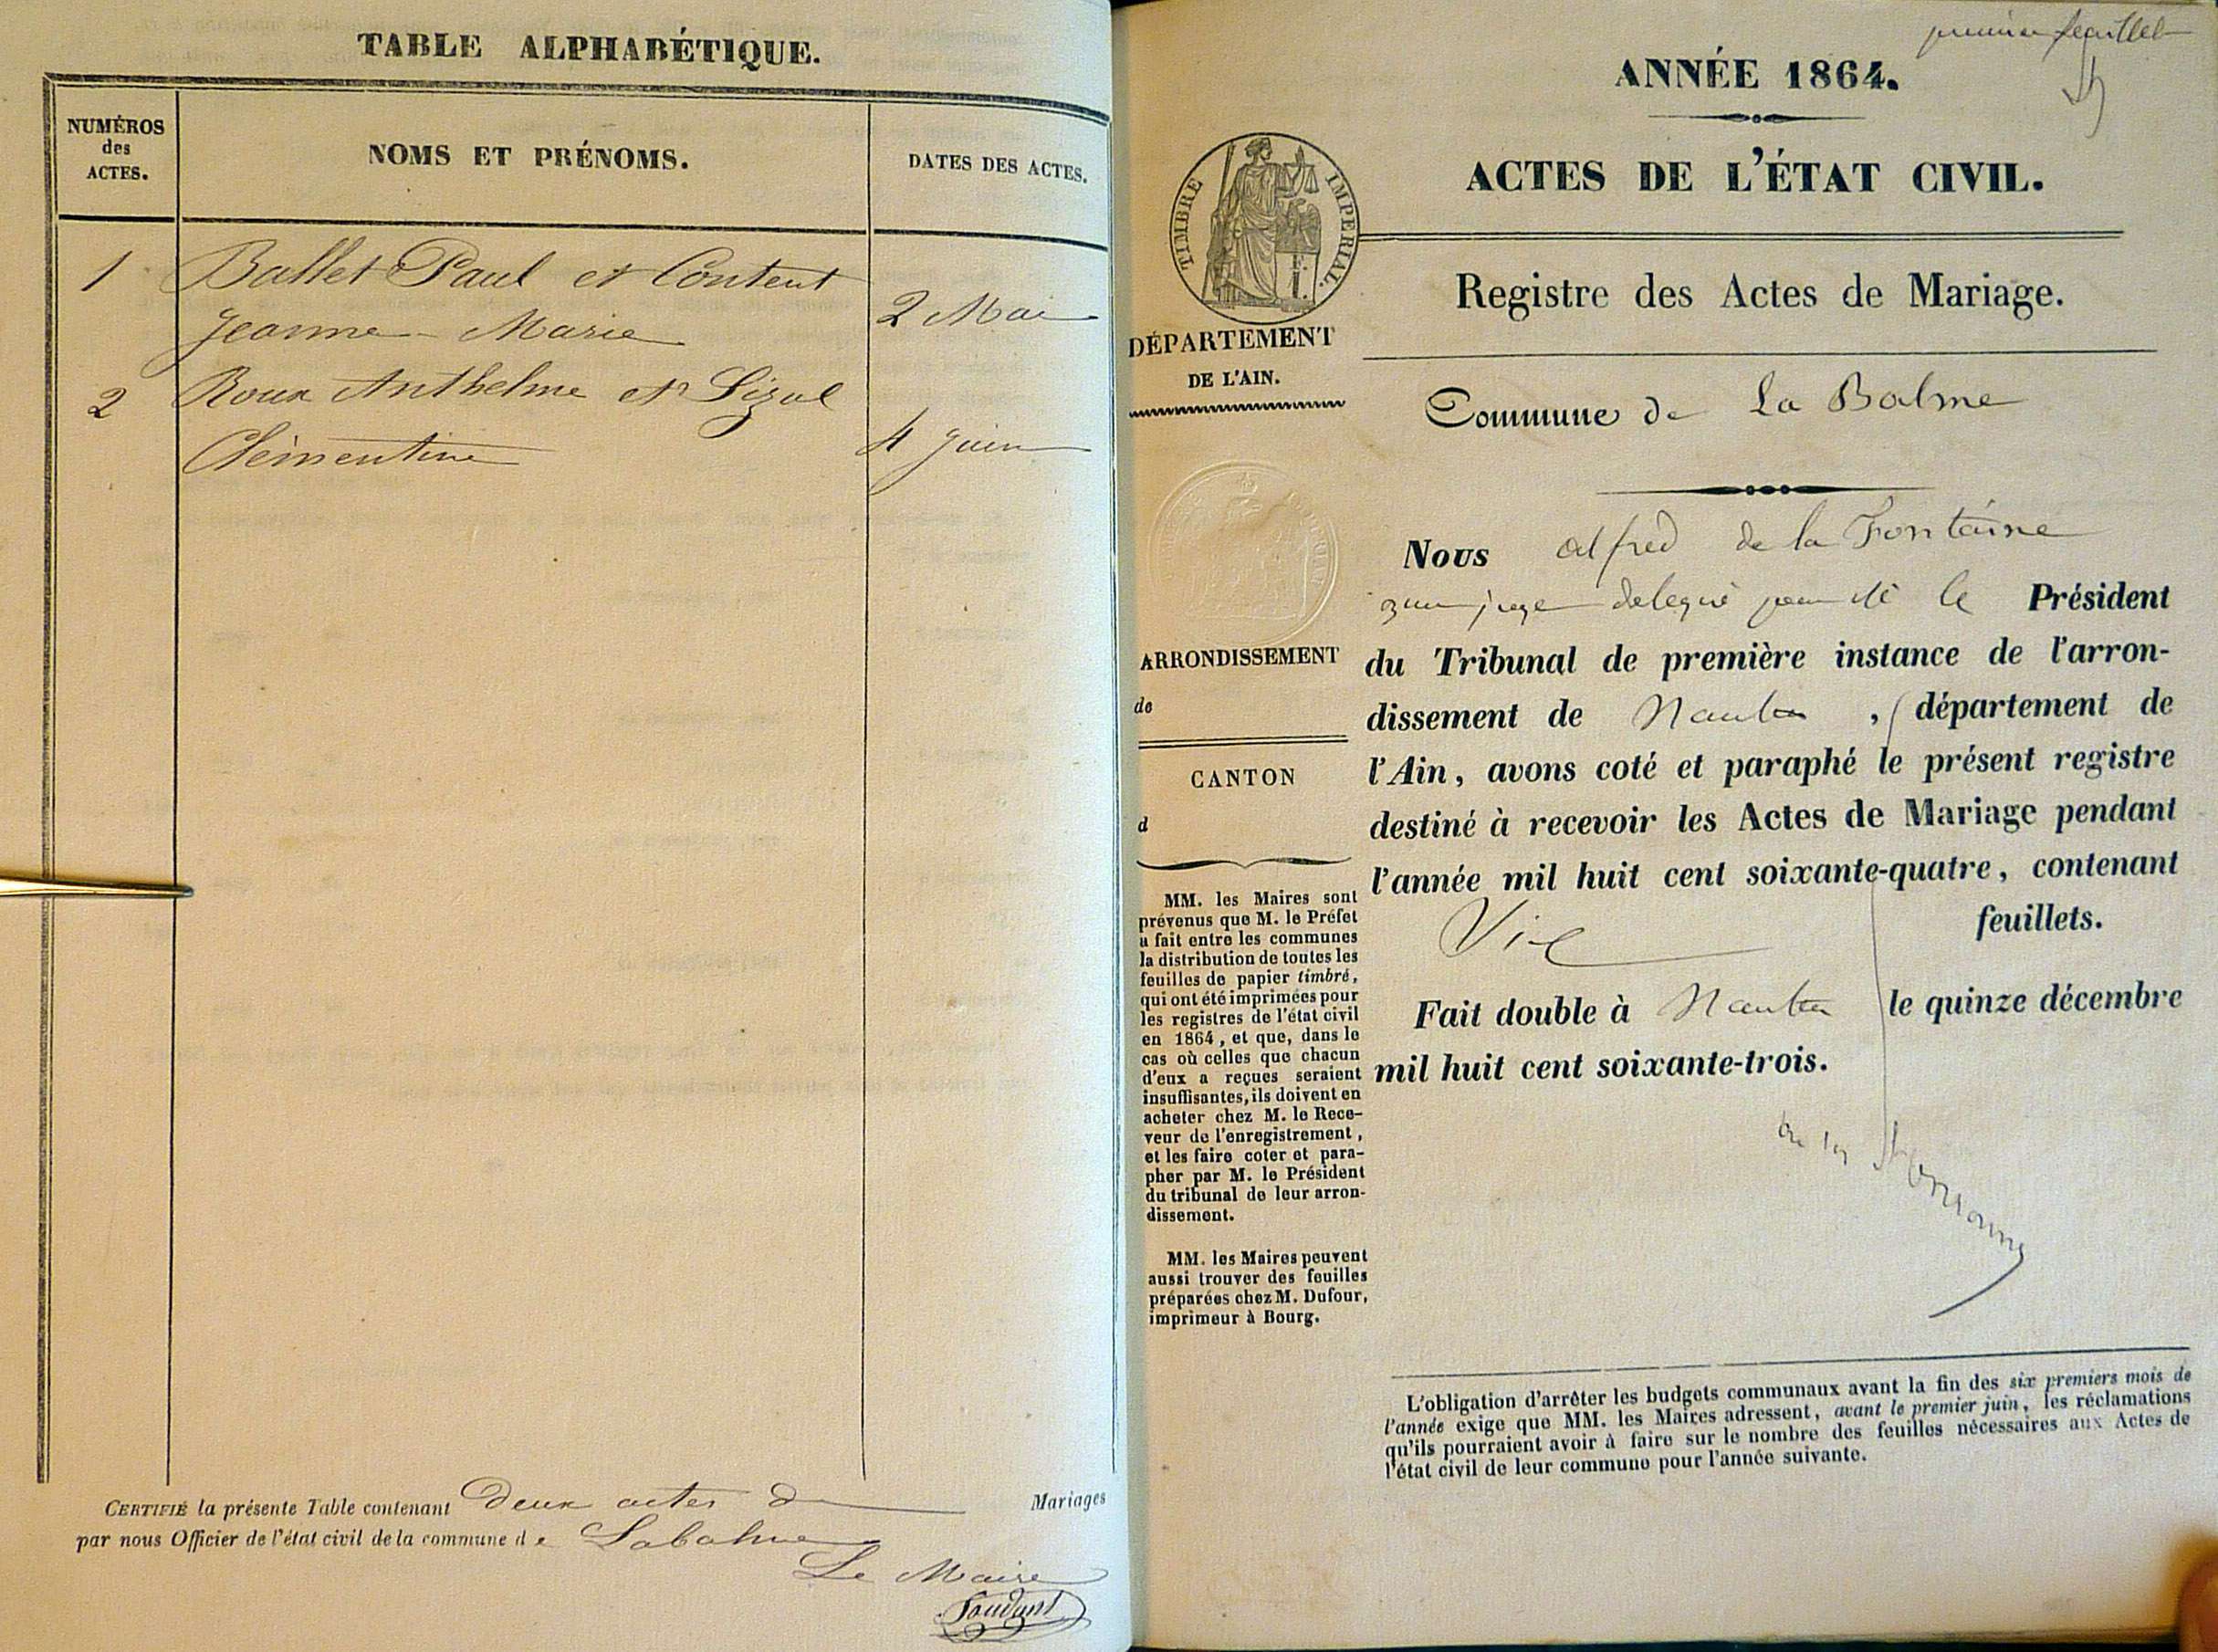 TABLE ALPHABÉTIQUE.
NUMÉROS
des
ACTES.
NOMS ET PRÉNOMS.
DATES DES ACTES.
1 Ballet Paul et Content
Jeanne-Marie 2 Mai
2 Roux Anthelme et Lizul
Clémentine 4 Juin
CERTIFIÉ la présente Table contenant deux actes de Mariages
par nous Officier de l'état civil de la commune de Labalme
Le Maire
premier feuillet
ANNÉE 1864.
ACTES DE L'ÉTAT CIVIL.
TIMBRE IMPERIAL.
DÉPARTEMENT
DE L'AIN.
Registre des Actes de Mariage.
Commune de La Balme
ARRONDISSEMENT
de
CANTON
d
MM. les Maires sont
prévenus que M. le Préfet
a fait entre les communes
la distribution de toutes les
feuilles de papier timbré,
qui ont été imprimées pour
les registres de l'état civil
en 1864, et que, dans le
cas où celles que chacun
d'eux a reçues seraient
insuffisantes, ils doivent en
acheter chez M. le Rece-
veur de l'enregistrement,
et les faire coter et para-
pher par M. le Président
du tribunal de leur arron-
dissement.
MM. les Maires peuvent
aussi trouver des feuilles
préparées chez M. Dufour,
imprimeur à Bourg.
Nous Alfred de la Fontaine
juge delegué le Président
du Tribunal de première instance de l'arron-
dissement de Nantua, département de
l'Ain, avons coté et paraphé le présent registre
destiné à recevoir les Actes de Mariage pendant
l'année mil huit cent soixante-quatre, contenant
feuillets.
Fait double à Nantua le quinze décembre
mil huit cent soixante-trois.
L'obligation d'arrêter les budgets communaux avant la fin des six premiers mois de
l'année exige que MM. les Maires adressent, avant le premier juin, les réclamations
qu'ils pourraient avoir à faire sur le nombre des feuilles nécessaires aux Actes de
l'état civil de leur commune pour l'année suivante.